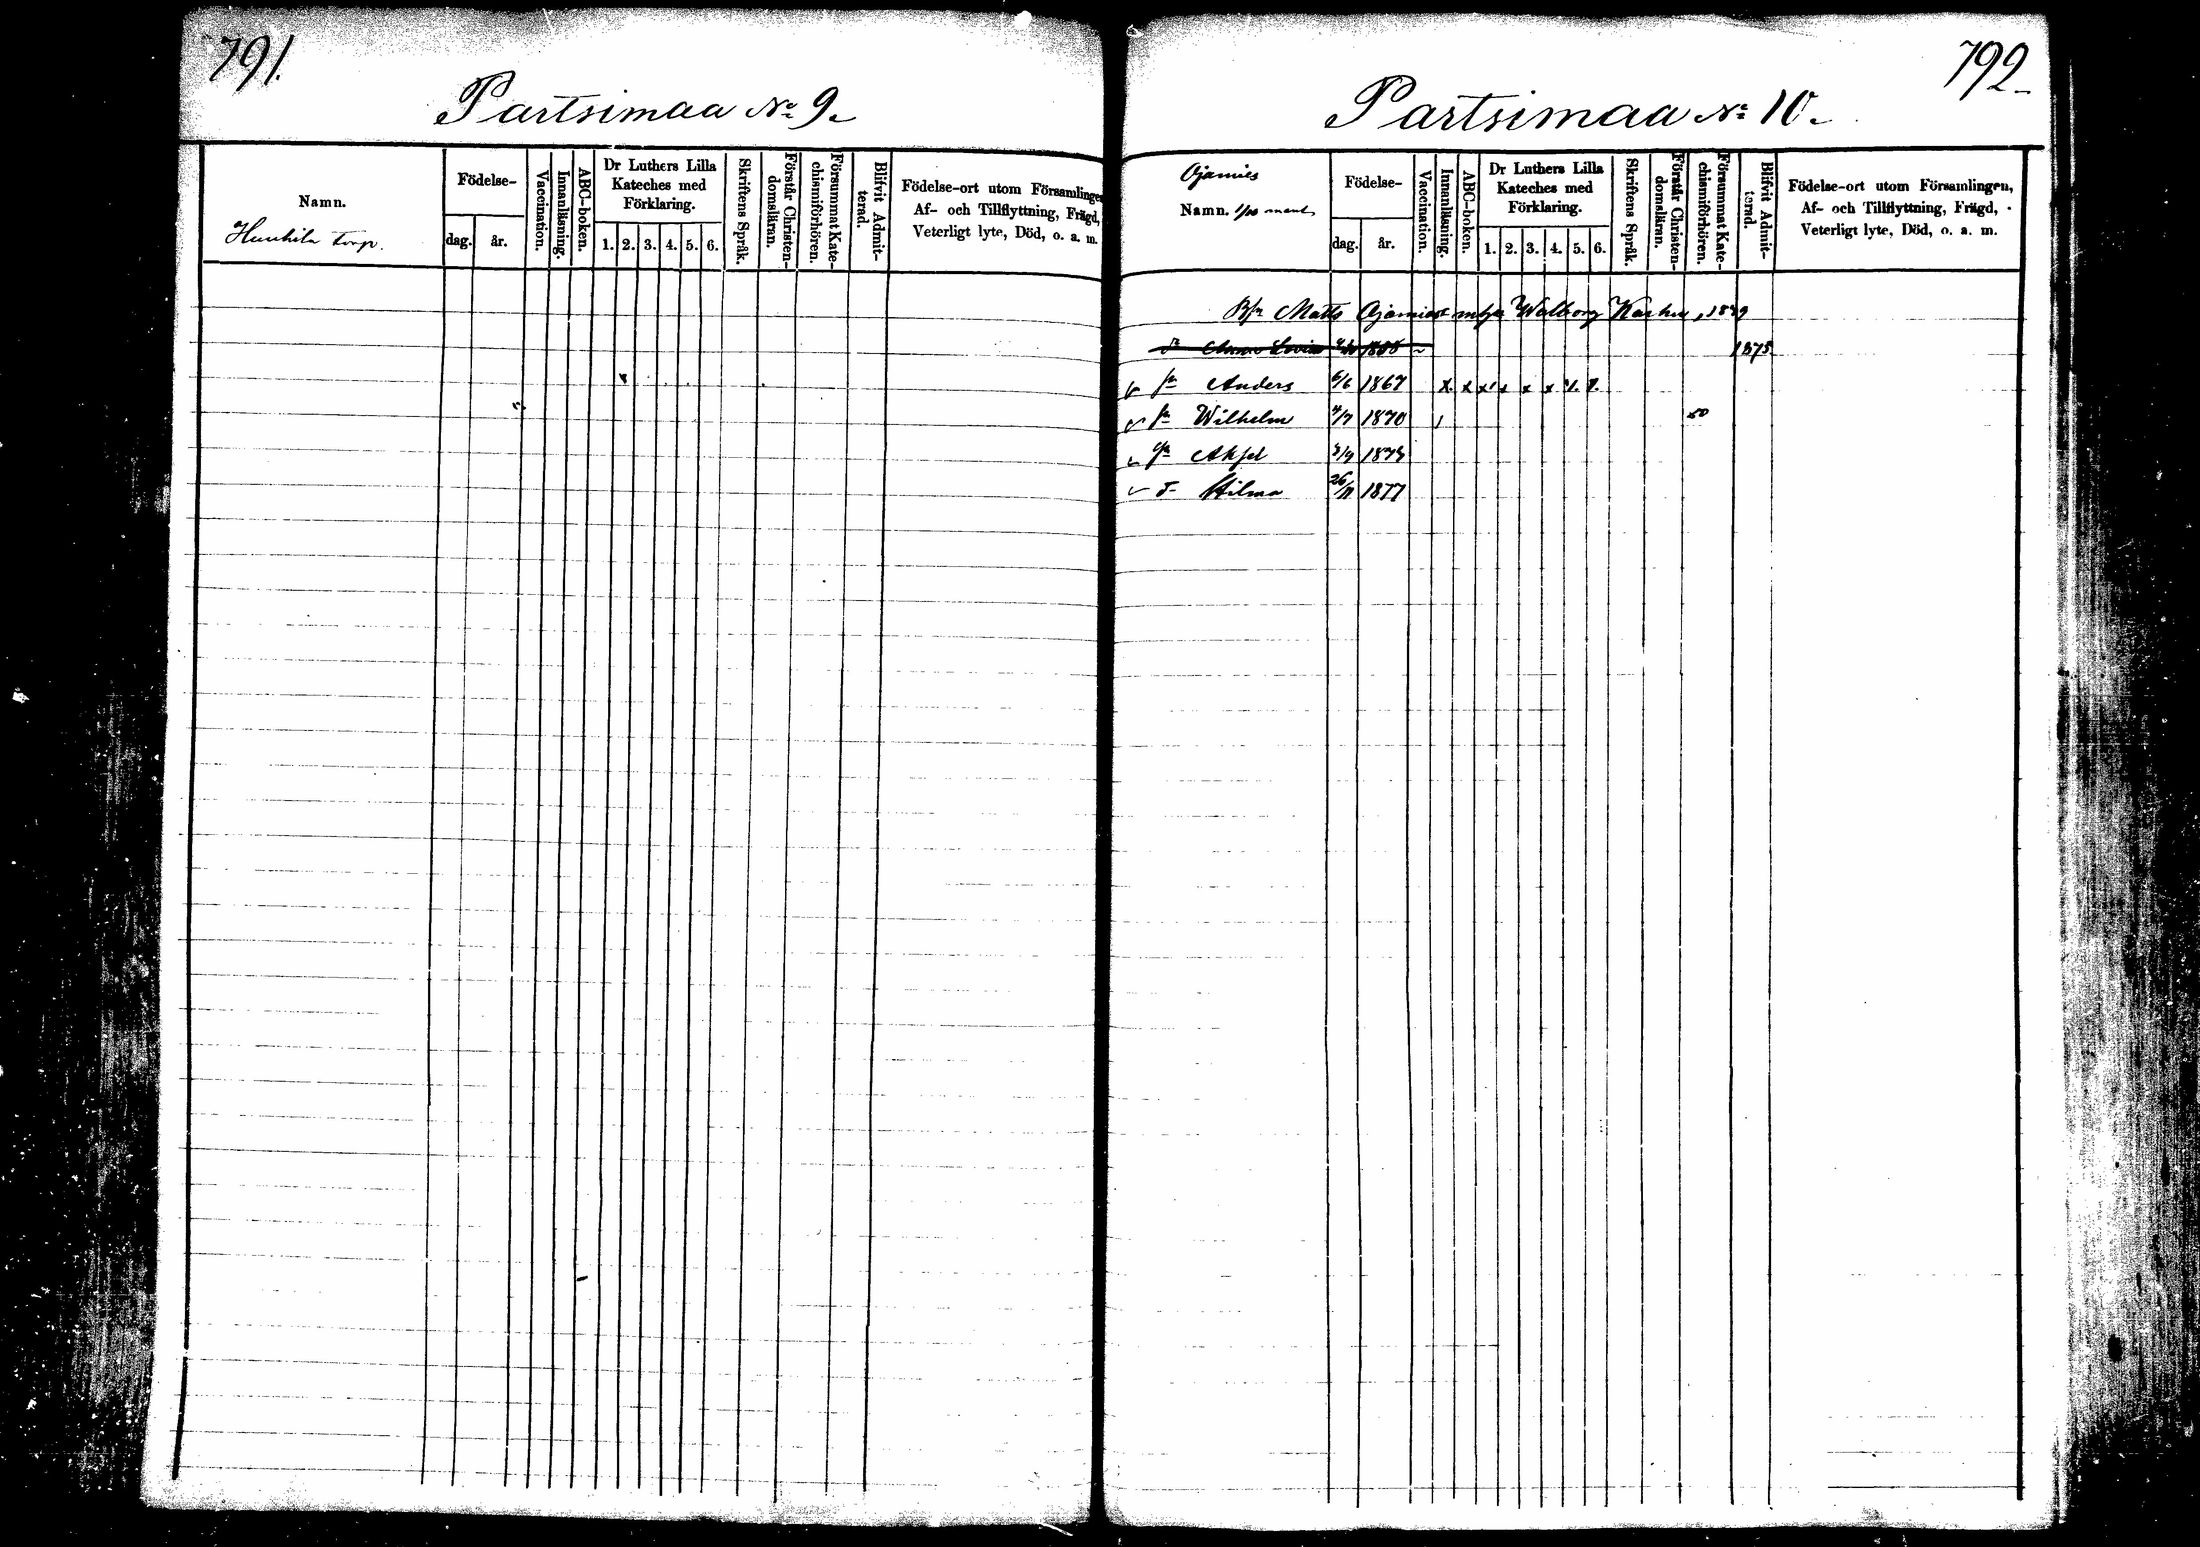 791.
Partsimaa No 9.
Namn.
torp.
Födelse-
dag.
år.
Vaccination.
Innanläsning.
ABC-boken.
Dr Luthers Lilla
Kateches med
Förklaring.
1. 2. 3. 4. 5. 6.
Skriftens Språk.
Förstår Christen-
domsläran.
Försummat Kate-
chismiförhören.
Blifvit Admit-
terad.
Födelse-ort utom Församlingen,
Af- och Tillflyttning, Frägd,
Veterligt lyte, Död, o. a. m.
792
Partsimaa No 10.
Ojamies
Namn.
Födelse-
dag.
år.
Vaccination.
Innanläsning.
ABC-boken.
Dr Luthers Lilla
Kateches med
Förklaring.
1. 2. 3. 4. 5. 6.
Skriftens Språk.
Förstår Christen-
domsläran.
Försummat Kate-
chismiförhören.
Blifvit Admit-
terad.
Födelse-ort utom Församlingen,
Af- och Tillflyttning, Frägd,
Veterligt lyte, Död, o. a. m.
Matts Ojamies Walborg
Lovisa 1875
Anders 6/6 1867 x x x x x x
Wilhelm 4/7 1870
Aksel
Hilma 26/11 1877